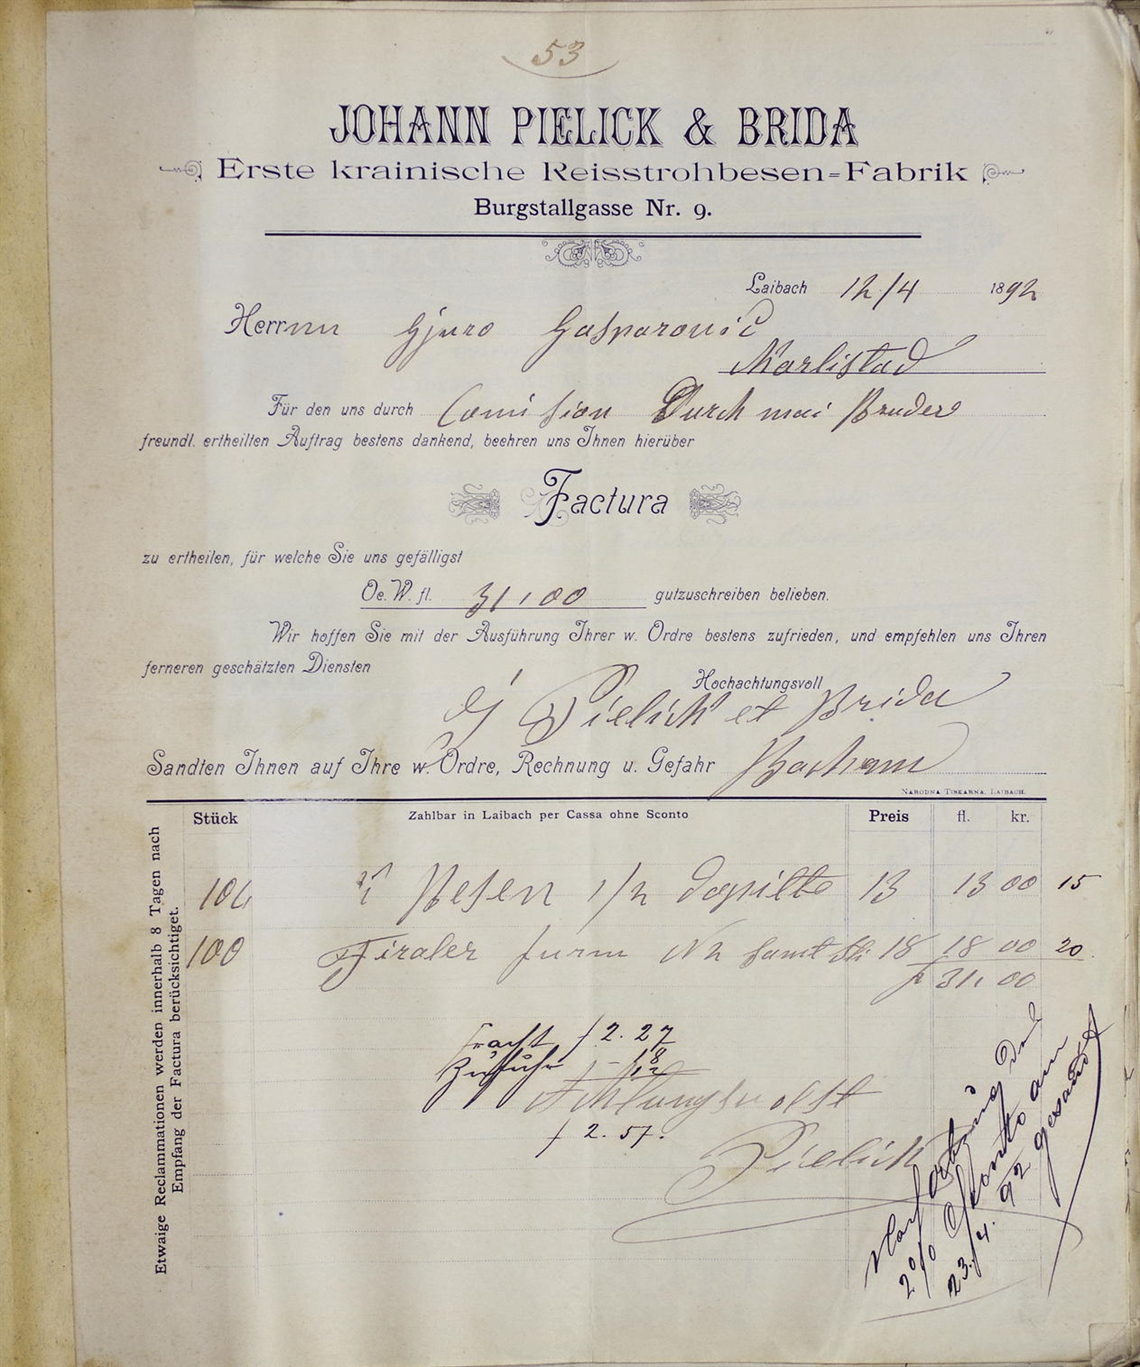 53
JOHANN PIELICK & BRIDA
Erste krainische Reisstrohbesen=Fabrik
Burgstallgasse Nr. 9.
Laibach 12/4 1892
Herrnn Gjuro Gasparović
Karlstad
Für den uns durch Comision Durch mai Bruder
freundl. ertheilten Auftrag bestens dankend, beehren uns Ihnen hierüber
Factura
zu ertheilen, für welche Sie uns gefälligst
Oe. W. fl. 31,00 gutzuschreiben belieben.
Wir hoffen Sie mit der Ausführung Ihrer w. Ordre bestens zufrieden, und empfehlen uns Ihren
ferneren geschätzten Diensten
Hochachtungsvoll
J Pielick et Brida
Sandten Ihnen auf Ihre w. Ordre, Rechnung u. Gefahr
NARODNA TISKARNA, LAIBACH.
Stück Zahlbar in Laibach per Cassa ohne Sconto Preis fl. kr.
100 Besen 13 13 00 15
100 Tiroler 18 18 00 20
f 31, 00
Fracht f 2. 27
Zufuhr
Achtungsvollst
f 2. 57.
Pielick
2% Sconto am
23/4. 92 gesandt
Etwaige Reclammationen werden innerhalb 8 Tagen nach
Empfang der Factura berücksichtiget.